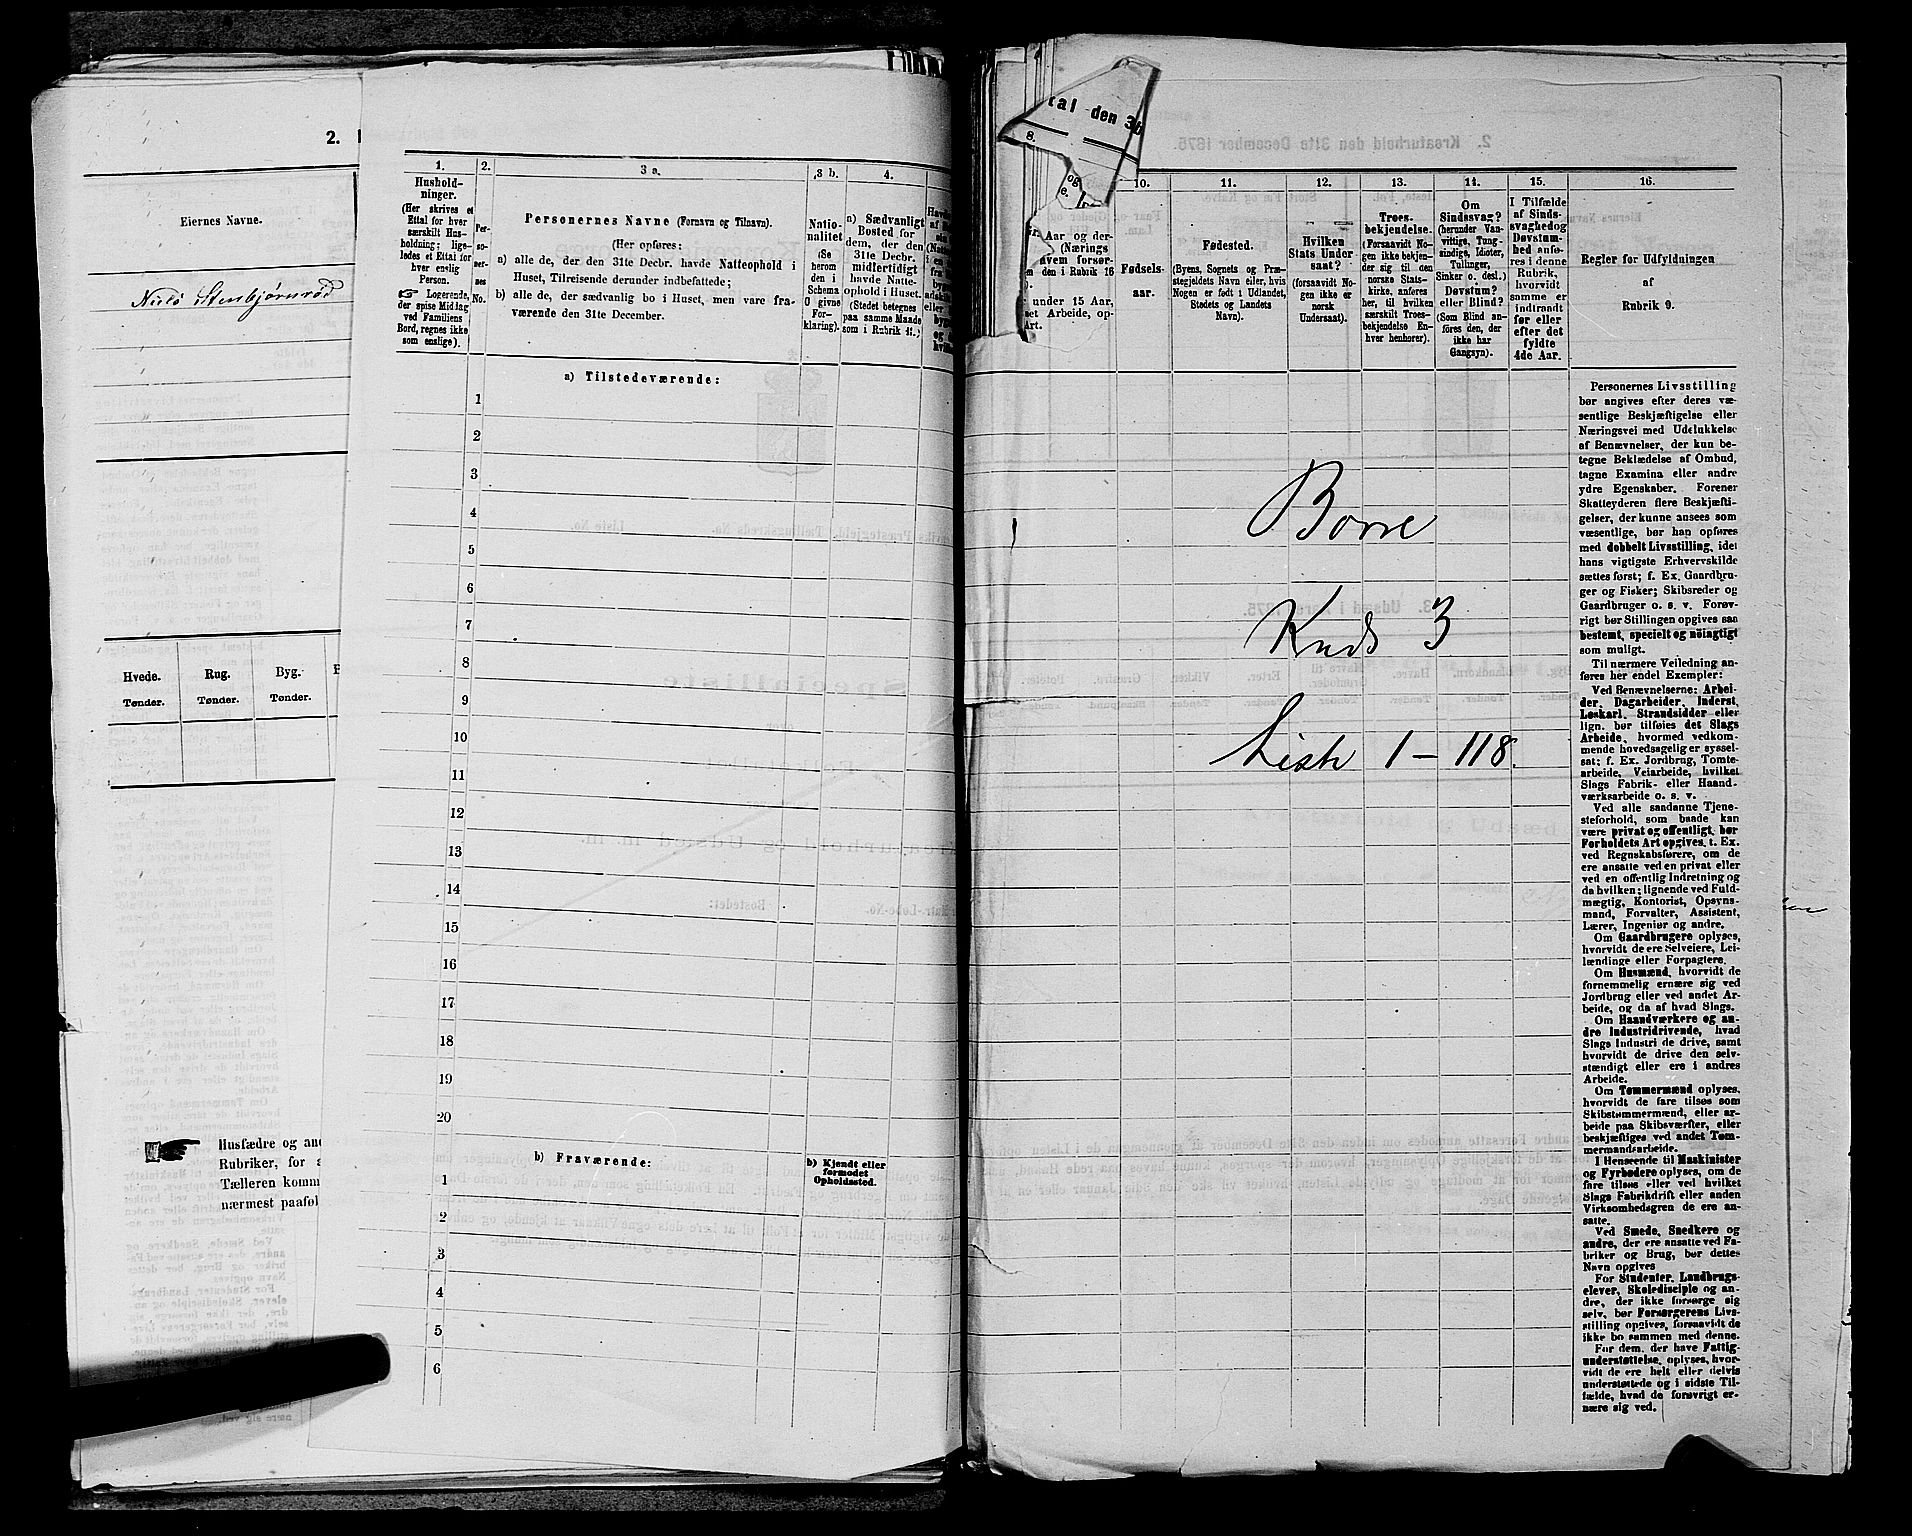 2.
Eiernes Navne.
Niels Stenbjørnrød
Hvede.
Tønder.
Rug.
Tønder.
Byg.
Tønder.
Husfædre og and
Rubriker, for
Tælleren komm
nærmest paaføl
1.
Hushold-
ninger.
(Her skrives et
Ettal for hver
særskilt Hus-
holdning; lige-
ledes et Ettal for
hver enslig
Person.
Logerende,
der spise Middag
ved Familiens
Bord, regnes ikke
som enslige).
2.
Per-
so-
ner-
nes
No.
3 a.
Personernes Navne (Fornavn og Tilnavn).
(Her opføres:
a) alle de, der den 31te Decbr. havde Natteophold i
Huset, Tilreisende derunder indbefattede;
b) alle de, der sædvanlig bo i Huset, men vare fra-
værende den 31te December.
3 b.
Natio-
nalitet
(Se
herom
den i
Schema
O givne
For-
klaring).
4.
a) Sædvanligt
Bosted for
dem, der den
31te Decbr.
midlertidigt
havde Natte-
ophold i Huset.
(Stedet betegnes
paa samme Maade
som i Rubrik 11.)
a) Tilstedeværende:
1
2
3
4
5
6
7
8
9
10
11
12
13
14
15
16
17
18
19
20
b) Fraværende:
b) Kjendt eller
formodet
Opholdssted.
1
2
3
4
5
6
tal den 3
8.
og
Aar og der-
(Nærings
hvem forsør-
den i Rubrik 16
under 15 Aar,
et Arbeide, op-
Art.
10.
Fødsels-
aar.
11.
Fødested.
(Byens, Sognets og Præ-
stegjeldets Navn eller, hvis
Nogen er født i Udlandet,
Stedets og Landets
Navn).
12.
Hvilken
Stats Under-
saat?
(forsaavidt No-
gen ikke er
norsk
Undersaat).
13.
Troes-
bekjendelse.
(Forsaavidt No-
gen ikke bekjen-
der sig til den
norske Stats-
kirke, anføres
her, til hvilken
særskilt Troes-
bekjendelse En-
hver henhører).
14.
Om
Sindssvag?
(herunder Van-
vittige, Tung-
sindige, Idioter,
Tullinger,
Sinker o. desl.)
Døvstum?
eller Blind?
(Som Blind an-
føres den, der
ikke har
Gangsyn).
15.
I Tilfælde
af Sinds-
svaghed og
Døvstum-
hed anfø-
res i denne
Rubrik,
hvorvidt
samme er
indtraadt
før eller
efter det
fyldte
4de Aar.
16.
Regler for Udfyldningen
af
Rubrik 9.
Borre
Kreds 3
Liste 1 – 118.
Personernes Livsstilling
bør angives efter deres væ-
sentlige Beskjæftigelse eller
Næringsvei med Udelukkelse
af Benævnelser, der kun be-
tegne Beklædelse af Ombud,
tagne Examina eller andre
ydre Egenskaber. Forener
Skatteyderen flere Beskjæfti-
gelser, der kunne ansees som
væsentlige, bør han opføres
med dobbelt Livsstilling, idet
hans vigtigste Erhvervskilde
sættes først; f. Ex. Gaardbru-
ger og Fisker; Skibsreder og
Gaardbruger o. s. v. Forøv-
rigt bør Stillingen opgives saa
bestemt, specielt og nøiagtigt
som muligt.
Til nærmere Veiledning an-
føres her endel Exempler:
Ved Benævnelserne: Arbei-
der, Dagarbeider, Inderst,
Løskarl, Strandsidder eller
lign. bør tilføies det Slags
Arbeide, hvormed vedkom-
mende hovedsagelig er syssel-
sat; f. Ex. Jordbrug, Tomte-
arbeide, Veiarbeide, hvilket
Slags Fabrik- eller Haand-
værksarbeide o. s. v.
Ved alle saadanne Tjene-
steforhold, som baade kan
være privat og offentligt, bør
Forholdets Art opgives, t. Ex.
ved Regnskabsførere, om de
ere ansatte ved en privat eller
ved en offentlig Indretning og
da hvilken; lignende ved Fuld-
mægtig, Kontorist, Opsyns-
mand, Forvalter, Assistent,
Lærer, Ingeniør og andre.
Om Gaardbrugere oplyses,
hvorvidt de ere Selveiere, Lei-
lændinge eller Forpagtere.
Om Husmænd, hvorvidt de
fornemmelig ernære sig ved
Jordbrug eller ved andet Ar-
beide, og da af hvad Slags.
Om Haandværkere og an-
dre Industridrivende, hvad
Slags Industri de drive, samt
hvorvidt de drive den selv-
stændigt eller ere i andres
Arbeide.
Om Tømmermænd oplyses,
hvorvidt de fare tilsøs som
Skibstømmermænd, eller ar-
beide paa Skibsværfter, eller
beskjæftiges ved andet Tøm-
mermandsarbeide.
I Henseende til Maskinister
og Fyrbødere oplyses, om de
fare tilsøs eller ved hvilket
Slags Fabrikdrift eller anden
Virksomhedsgren de ere an-
satte.
Ved Smede, Snedkere og
andre, der ere ansatte ved Fa-
briker og Brug, bør dettes
Navn opgives
For Studenter, Landbrugs-
elever, Skoledisciple og an-
dre, der ikke forsørge sig
selv, bør Forsørgerens Livs-
stilling opgives, forsaavidt de
ikke bo sammen med denne.
For dem, der have Fattig-
understøttelse, oplyses, hvor-
vidt de ere helt eller delvis
understøttede og i sidste Til-
fælde, hvad de forøvrigt er-
nære sig ved.